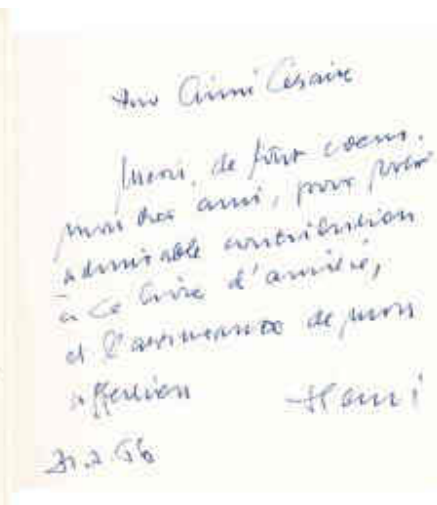 Aimé Césaire
Merci, de tout coeur,
mon cher ami, pour votre
admirable contribution
à ce livre d'amitié,
et l'assurance de mon
affection